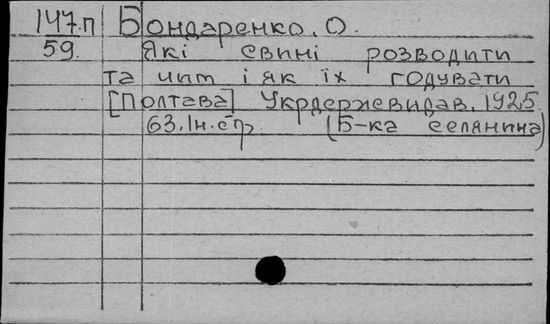 147.п Бондаренко, О.
59. Які свині розводити
та чим і як їх годувати
[Полтава] Укрдержвидав, 1925.
63, Ін. стр. (Б-ка селянина)